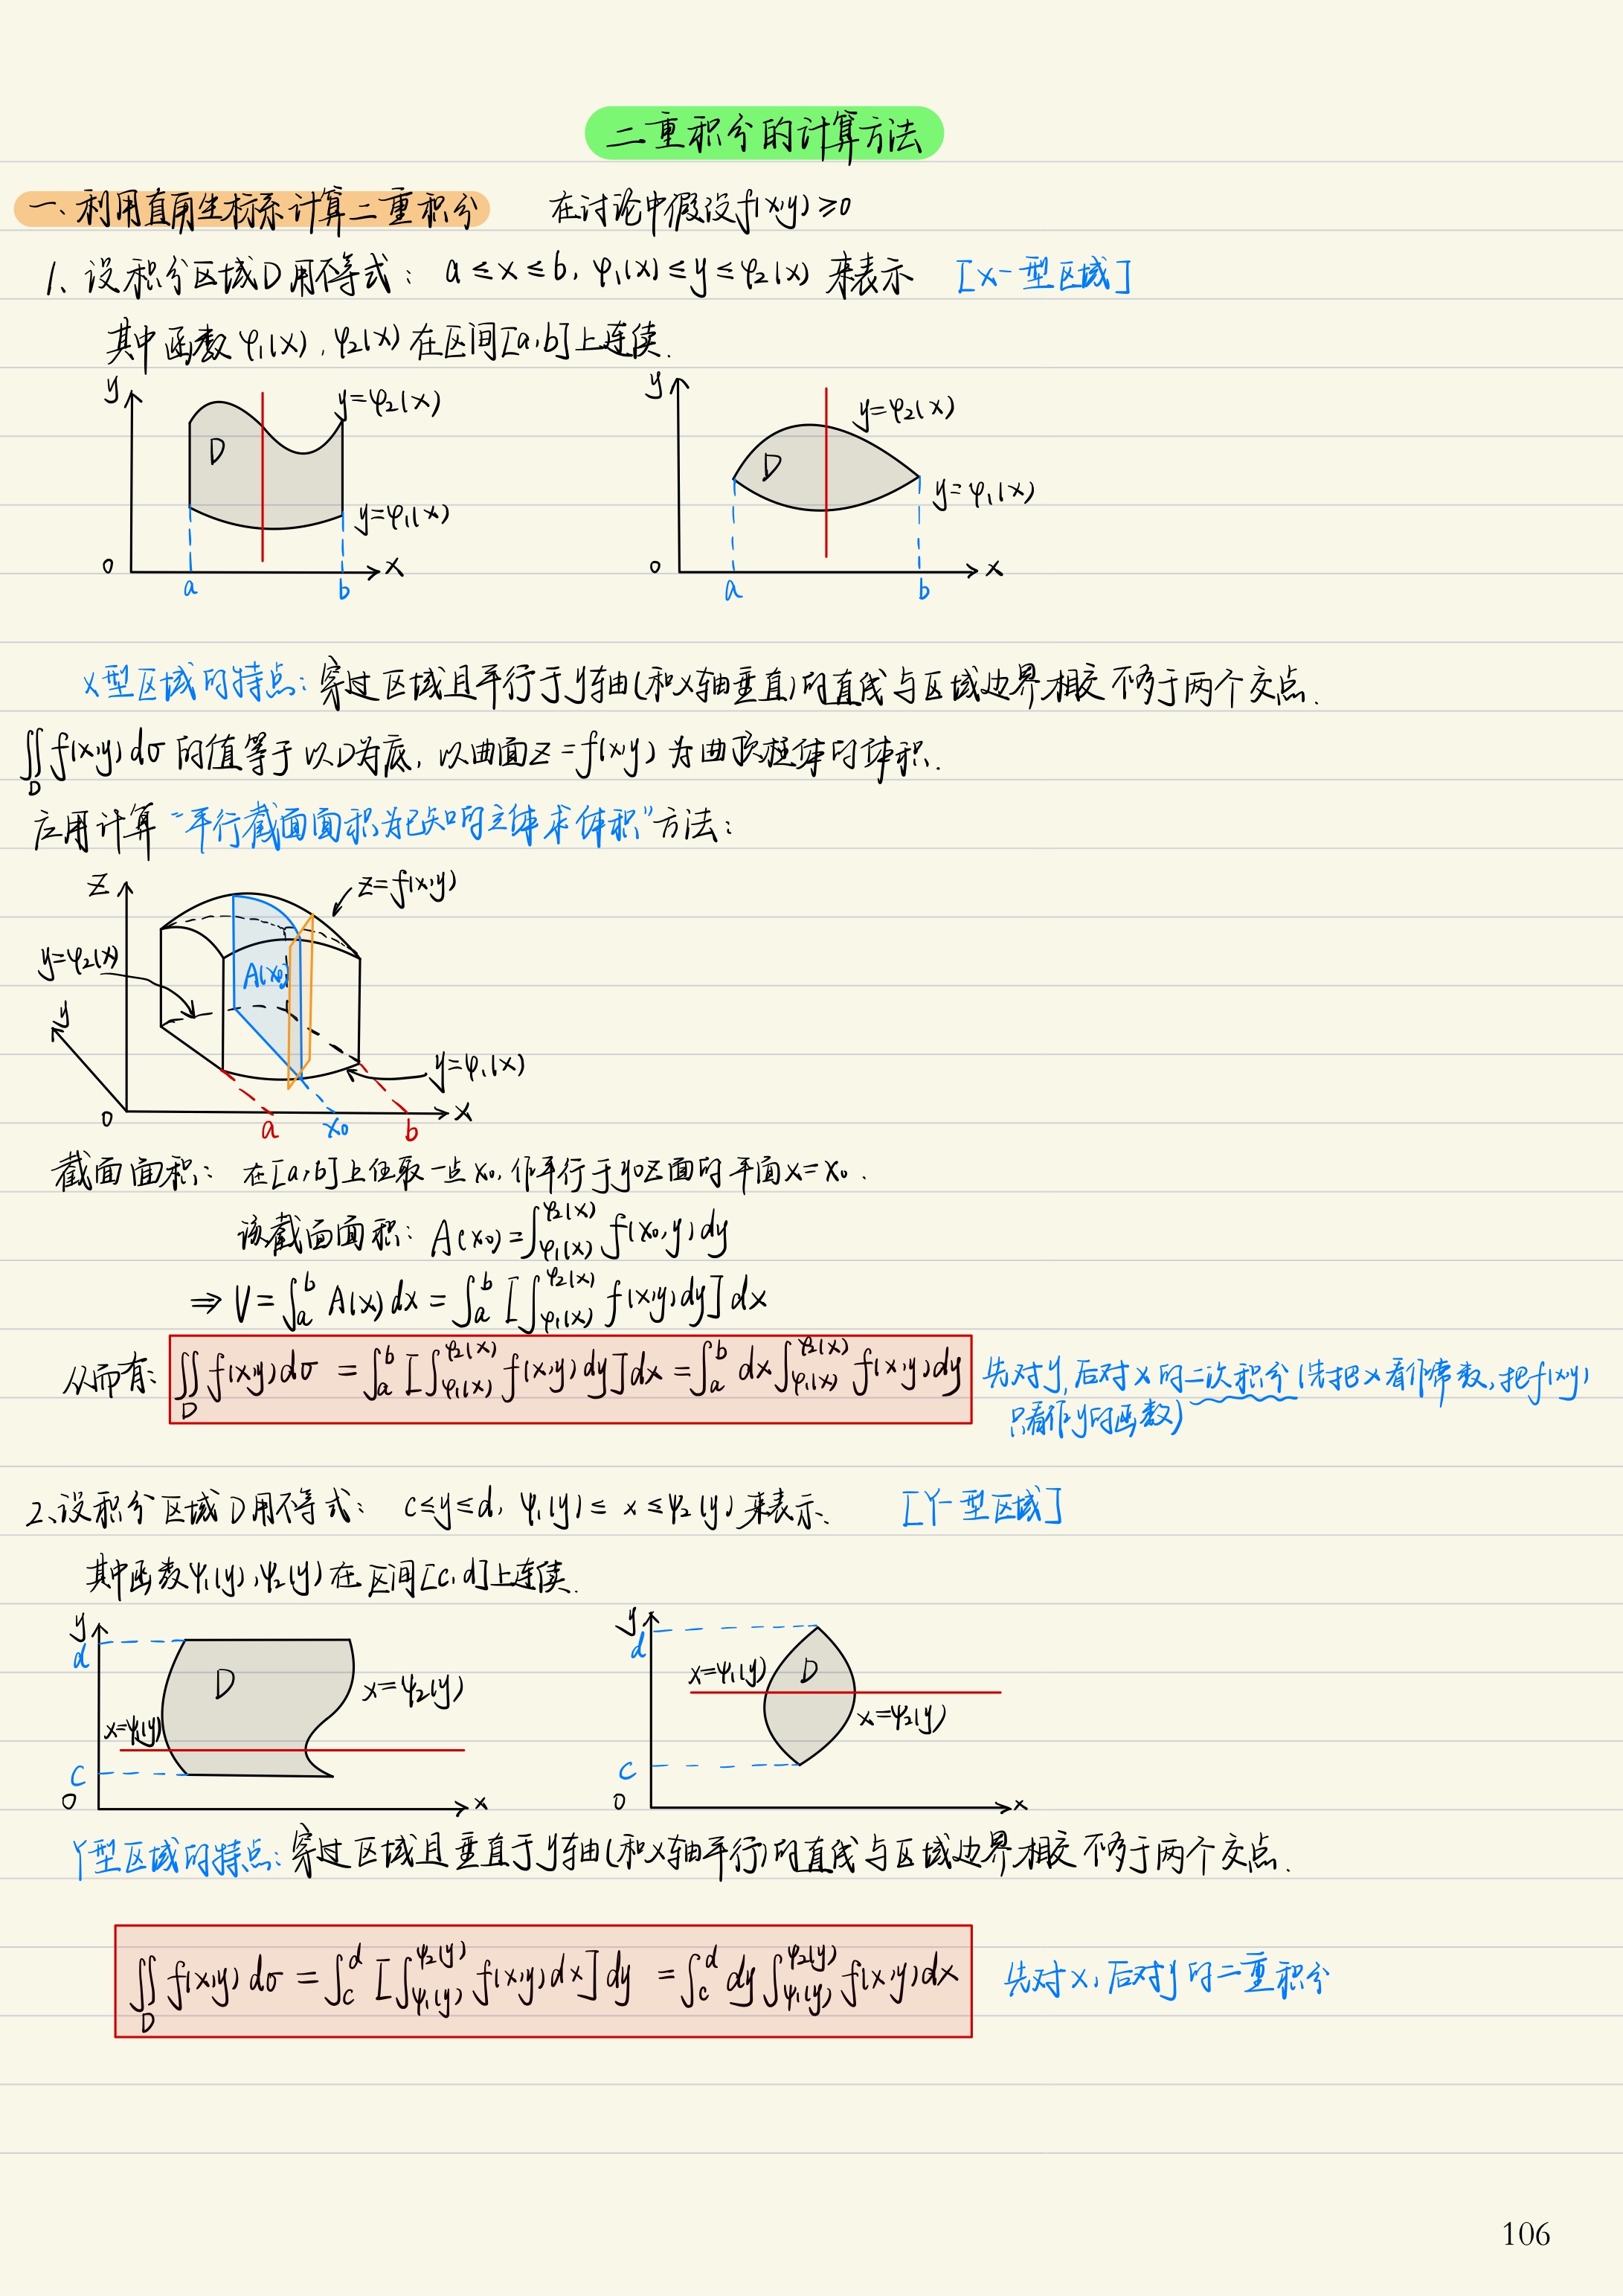 二重积分的计算方法
一、利用直角坐标系计算二重积分 在讨论中假设f(x,y)≥0
1、设积分区域D用不等式: a≤x≤b, φ₁(x)≤y≤φ₂(x) 来表示 [X-型区域]
其中函数φ₁(x), φ₂(x)在区间[a,b]上连续.
y y=φ₂(x) D y=φ₁(x) 0 a b x
y y=φ₂(x) D y=φ₁(x) 0 a b x
X型区域的特点: 穿过区域且平行于y轴(和x轴垂直)的直线与区域边界相交不多于两个交点.
∬_D f(x,y)dσ 的值等于以D为底, 以曲面z=f(x,y)为曲顶柱体的体积.
应用计算“平行截面面积为已知的立体求体积”方法:
z z=f(x,y) y=φ₂(x) A(x₀) y y=φ₁(x) 0 a x₀ b x
截面面积: 在[a,b]上任取一点x₀, 作平行于yoz面的平面x=x₀.
该截面面积: A(x₀)=∫_{φ₁(x)}^{φ₂(x)} f(x₀,y)dy
⇒ V=∫_a^b A(x)dx=∫_a^b [∫_{φ₁(x)}^{φ₂(x)} f(x,y)dy]dx
从而有: ∬_D f(x,y)dσ =∫_a^b [∫_{φ₁(x)}^{φ₂(x)} f(x,y)dy]dx=∫_a^b dx∫_{φ₁(x)}^{φ₂(x)} f(x,y)dy 先对y, 后对x的二次积分(先把x看作常数, 把f(x,y)
只看作y的函数)
2、设积分区域D用不等式: c≤y≤d, ψ₁(y)≤x≤ψ₂(y)来表示、 [Y-型区域]
其中函数ψ₁(y),ψ₂(y)在区间[c,d]上连续.
y d D x=ψ₂(y) x=ψ₁(y) c 0 x
y d x=ψ₁(y) D x=ψ₂(y) c 0 x
Y型区域的特点: 穿过区域且垂直于y轴(和x轴平行)的直线与区域边界相交不多于两个交点.
∬_D f(x,y)dσ =∫_c^d [∫_{ψ₁(y)}^{ψ₂(y)} f(x,y)dx]dy =∫_c^d dy∫_{ψ₁(y)}^{ψ₂(y)} f(x,y)dx 先对x, 后对y的二重积分
106